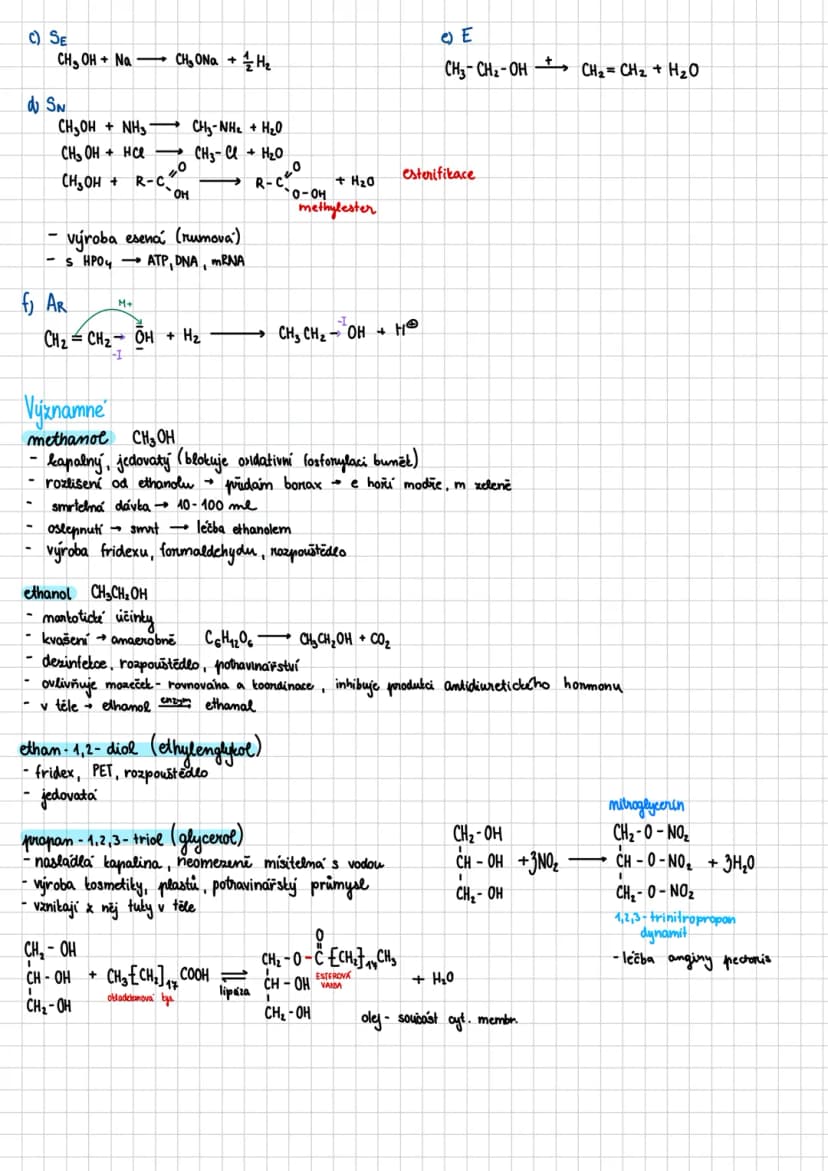 c) SE
CH3OH + Na → CH3ONa + 1/2 H2
e) E
CH3-CH2-OH +→ CH2=CH2 + H2O
d) SN
CH3OH + NH3 → CH3-NH2 + H2O
CH3OH + HCl → CH3-Cl + H2O
CH3OH + R-C=O OH → R-C=O O-OH + H2O esterifikace
methylester
- výroba esencí (rumová)
- s HPO4 → ATP, DNA, mRNA
f) AR
M+
CH2=CH2→OH + H2 → CH3CH2→OH + H⊕
-I -I
Významné
methanol CH3OH
- kapalný, jedovatý (blokuje oxidativní fosforylaci buněk)
- rozlišení od ethanolu → přidám borax → e hoří modře, m zeleně
- smrtelná dávka → 10-100 ml
- oslepnutí → smrt → léčba ethanolem
- výroba fridexu, formaldehydu, rozpouštědlo
ethanol CH3CH2OH
- narkotické účinky
- kvašení → anaerobně C6H12O6 → CH3CH2OH + CO2
- dezinfekce, rozpouštědlo, potravinářství
- ovlivňuje mozeček - rovnováha a koordinace, inhibuje produkci antidiuretického hormonu
- v těle → ethanol enzym→ ethanal
ethan-1,2-diol (ethylenglykol)
- fridex, PET, rozpouštědlo
- jedovatá
propan-1,2,3-triol (glycerol)
- nasládlá kapalina, neomezeně mísitelná s vodou
- výroba kosmetiky, plastů, potravinářský průmysl
- vznikají z něj tuky v těle
nitroglycerin
CH2-OH CH2-O-NO2
CH-OH +3NO2 → CH-O-NO2 + 3H2O
CH2-OH CH2-O-NO2
1,2,3-trinitropropan
dynamit
- léčba anginy pectoris
O
CH2-OH CH2-O-C[CH2]14CH3
CH-OH + CH3[CH2]17COOH ⇌ CH-OH ESTEROVÁ VAZBA + H2O
oktadekanová kys. lipáza
CH2-OH CH2-OH
olej - součást cyt. membr.